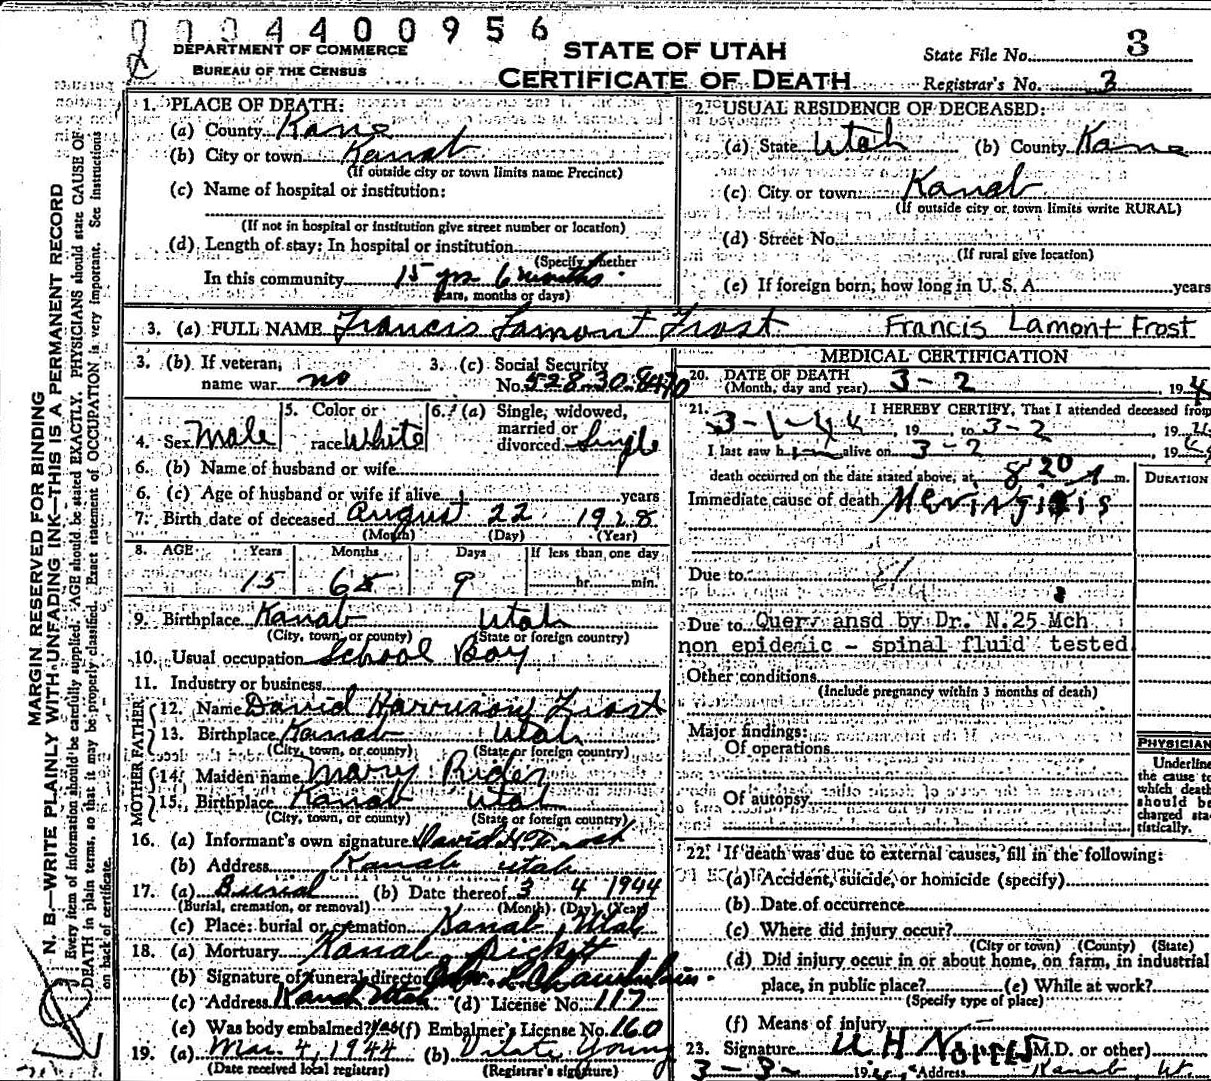 0004400956
DEPARTMENT OF COMMERCE
BUREAU OF THE CENSUS
STATE OF UTAH
CERTIFICATE OF DEATH
State File No. 3
Registrar's No. 3
MARGIN RESERVED FOR BINDING
N. B.—WRITE PLAINLY WITH UNFADING INK—THIS IS A PERMANENT RECORD
Every item of information should be carefully supplied. AGE should be stated EXACTLY. PHYSICIANS should state CAUSE OF
DEATH in plain terms, so that it may be properly classified. Exact statement of OCCUPATION is very important. See instructions
on back of certificate.
1. PLACE OF DEATH:
(a) County Kane
(b) City or town Kanab
(If outside city or town limits name Precinct)
(c) Name of hospital or institution:
(If not in hospital or institution give street number or location)
(d) Length of stay: In hospital or institution
(Specify whether
In this community 15 yrs 6 months
years, months or days)
2. USUAL RESIDENCE OF DECEASED:
(a) State Utah (b) County Kane
(c) City or town Kanab
(If outside city or town limits write RURAL)
(d) Street No.
(If rural give location)
(e) If foreign born, how long in U. S. A. years
3. (a) FULL NAME Francis Lamont Frost Francis Lamont Frost
3. (b) If veteran, name war no
3. (c) Social Security No. 528-30-8470
4. Sex Male
5. Color or race White
6. (a) Single, widowed, married or divorced Single
6. (b) Name of husband or wife
6. (c) Age of husband or wife if alive years
7. Birth date of deceased August 22 1928
(Month) (Day) (Year)
8. AGE Years Months Days If less than one day
15 6 9 hr. min.
9. Birthplace Kanab Utah
(City, town, or county) (State or foreign country)
10. Usual occupation School Boy
11. Industry or business
FATHER
12. Name David Harrison Frost
13. Birthplace Kanab Utah
(City, town, or county) (State or foreign country)
MOTHER
14. Maiden name Mary Rider
15. Birthplace Kanab Utah
(City, town, or county) (State or foreign country)
16. (a) Informant's own signature David H Frost
(b) Address Kanab Utah
17. (a) Burial (b) Date thereof 3 4 1944
(Burial, cremation, or removal) (Month) (Day) (Year)
(c) Place: burial or cremation Kanab, Utah
18. (a) Mortuary Kanab
(b) Signature of funeral director Chamberlain
(c) Address Kanab Utah (d) License No. 117
(e) Was body embalmed? Yes (f) Embalmer's License No. 160
19. (a) Mar. 4, 1944 (b) Vilate Young
(Date received local registrar) (Registrar's signature)
MEDICAL CERTIFICATION
20. DATE OF DEATH
(Month, day and year) 3-2 194
21. I HEREBY CERTIFY, That I attended deceased from
3-1-44, 19 to 3-2, 19
I last saw him alive on 3-2, 19
death occurred on the date stated above, at 8 20 A m.
DURATION
Immediate cause of death Meningitis
Due to
Due to Query ansd by Dr. N.25 Mch
non epidemic - spinal fluid tested
Other conditions
(Include pregnancy within 3 months of death)
Major findings:
Of operations
Of autopsy
PHYSICIAN
Underline
the cause to
which death
should be
charged sta-
tistically.
22. If death was due to external causes, fill in the following:
(a) Accident, suicide, or homicide (specify)
(b) Date of occurrence
(c) Where did injury occur?
(City or town) (County) (State)
(d) Did injury occur in or about home, on farm, in industrial
place, in public place? (e) While at work?
(Specify type of place)
(f) Means of injury
23. Signature M.D. or other)
3-3- 19 Address Kanab, Ut.